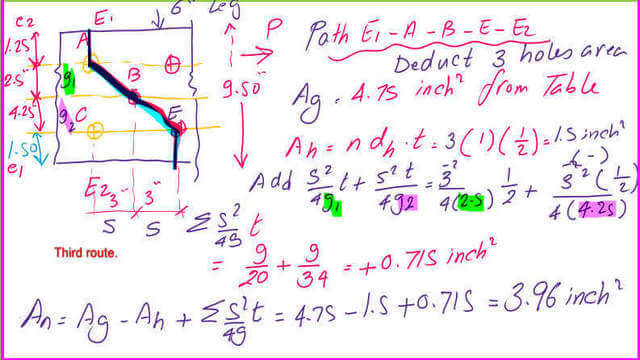 6" leg
E1
e2
1.25"
2.5"
4.25
1.50
e1
A
B
C
E
g1
g2
E2
3"
3"
S
S
9.50"
P
Path E1 - A - B - E - E2
Deduct 3 holes area
Ag = 4.75 inch² from Table
Ah = n dh · t = 3(1)(1/2) = 1.5 inch²
(-)
Add s²/4g1 t + s² t/4g2 = 3²/4(2.5) 1/2 + 3² (1/2)/4(4.25)
Σ s²/4g t
= 9/20 + 9/34 = +0.715 inch²
Third route.
An = Ag - Ah + Σ s²/4g t = 4.75 - 1.5 + 0.715 = 3.96 inch²